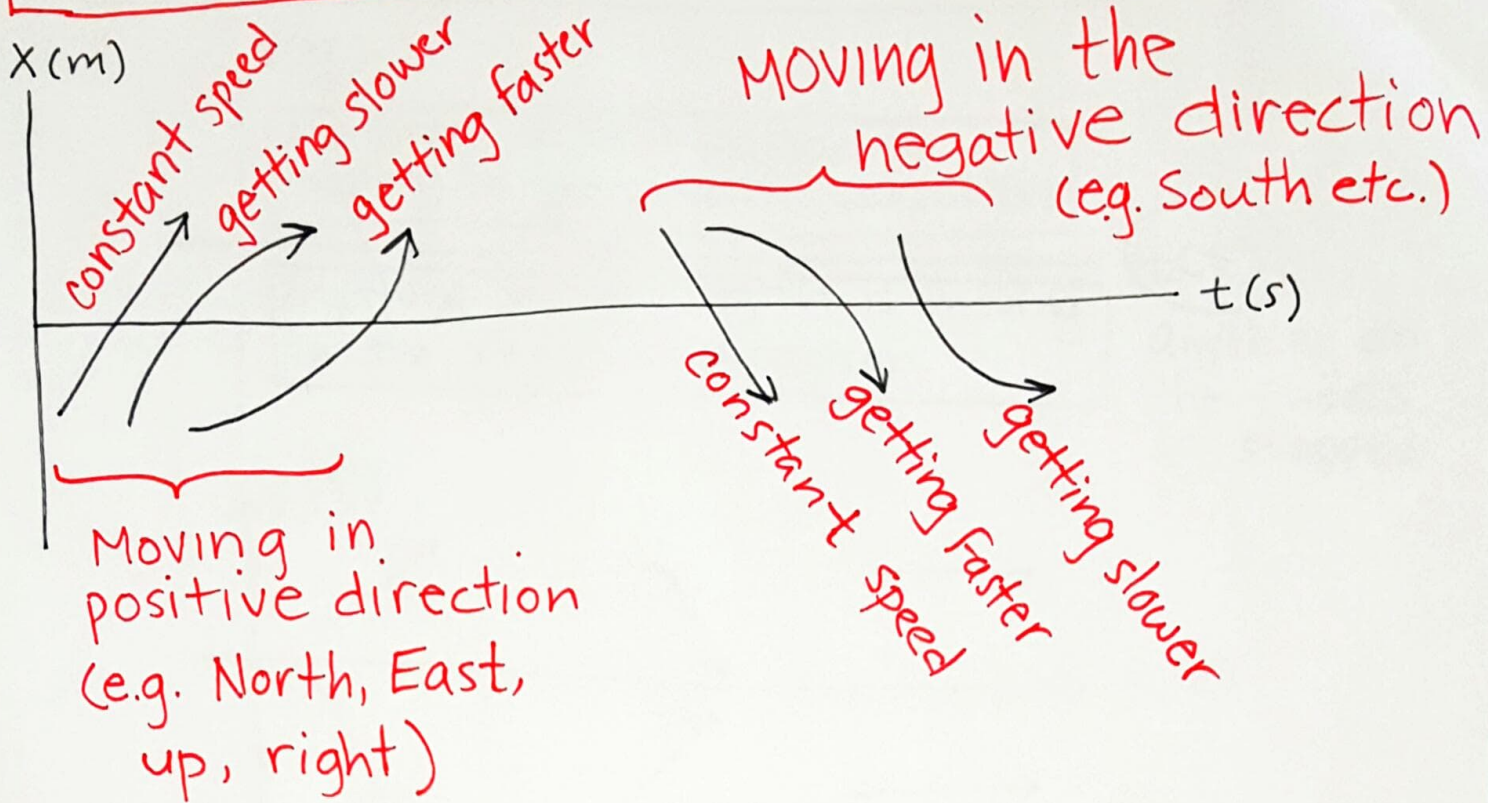 X (m)
constant speed
getting slower
getting faster
Moving in the
negative direction
(e.g. South etc.)
t (s)
constant speed
getting faster
getting slower
Moving in
positive direction
(e.g. North, East,
up, right)